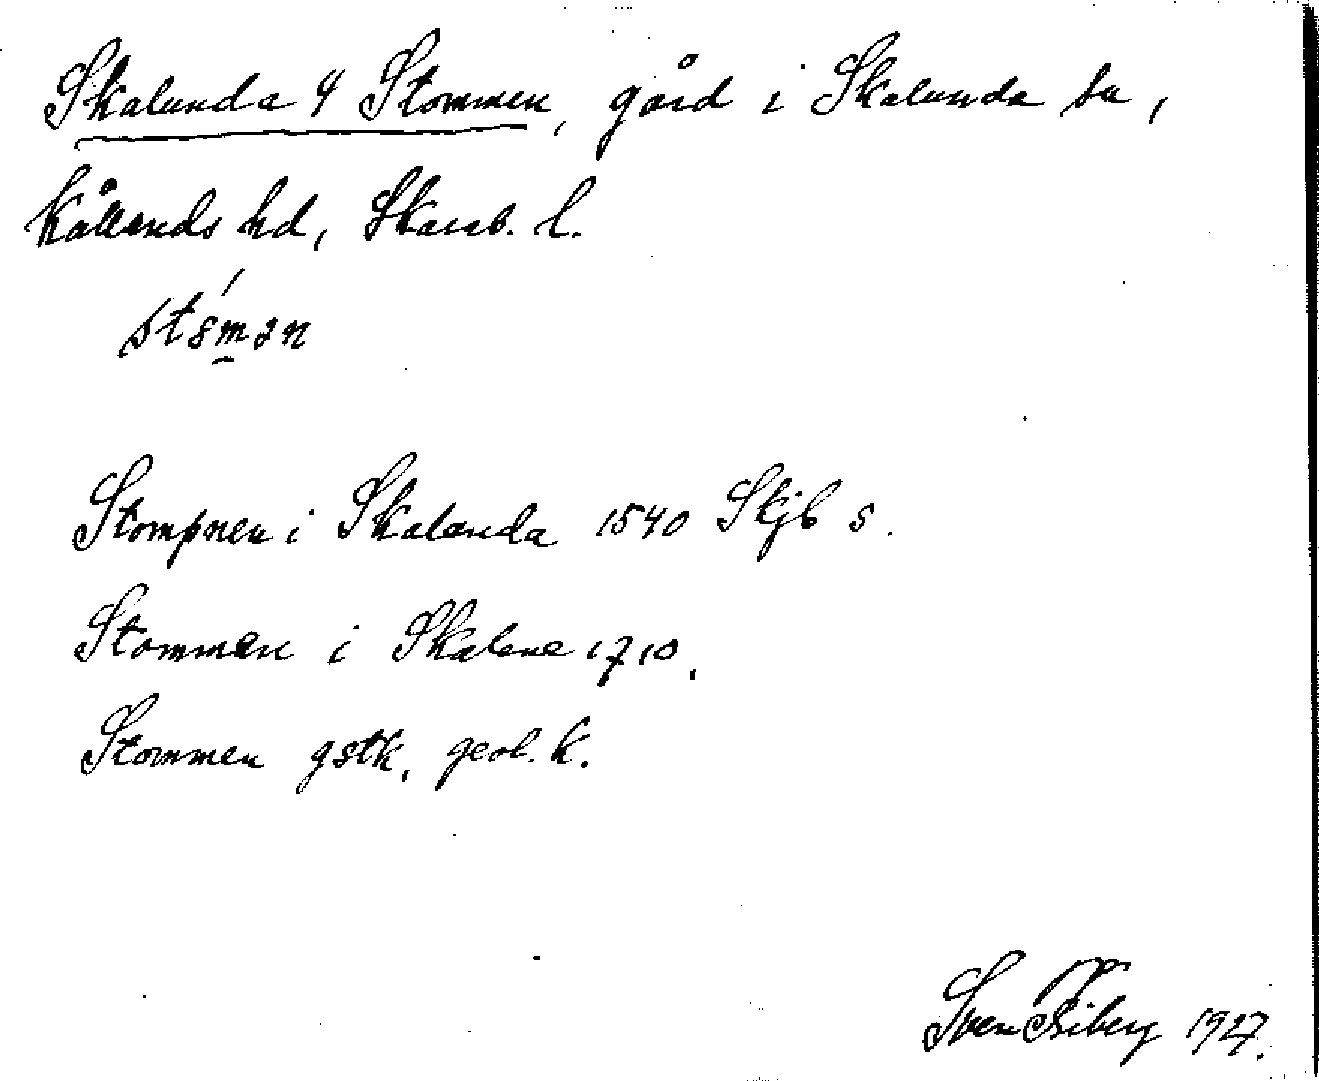 Skalunda 4 Stommen, gård i Skalunda sn,
Kållands hd, Skarab. l.
Stompnen i Skalanda 1540 Skjb 5.
Stommen i Skalene 1710.
Stommen gstk, geol. k.
Sven 1927.